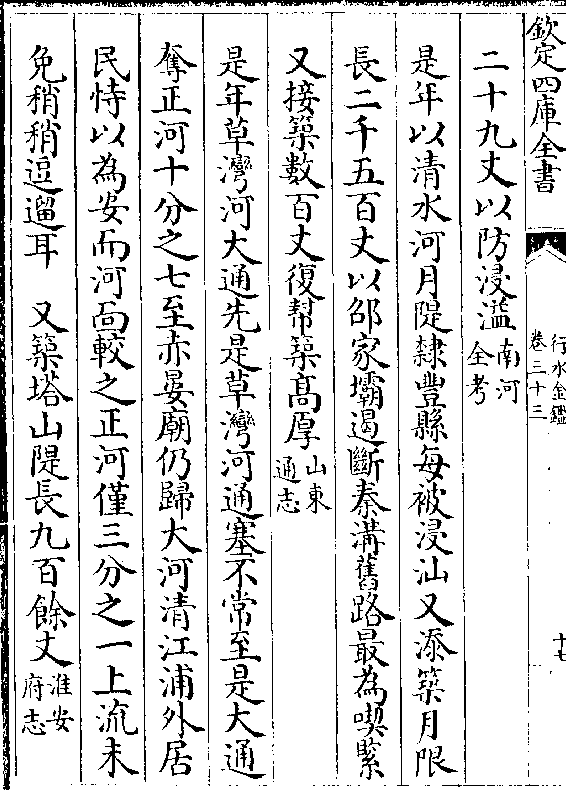 欽定四庫全書
行水金鑑
卷三十三
十七
二十九丈以防浸溢南河全考
是年以清水河月隄隸豐縣每被浸汕又添築月限
長二千五百丈以邵家壩遏斷秦溝舊路最為喫緊
又接築數百丈復幇築髙厚山東通志
是年草灣河大通先是草灣河通塞不常至是大通
奪正河十分之七至赤晏廟仍歸大河清江浦外居
民恃以為安而河面較之正河僅三分之一上流未
免稍稍逗遛耳　又築塔山隄長九百餘丈淮安府志